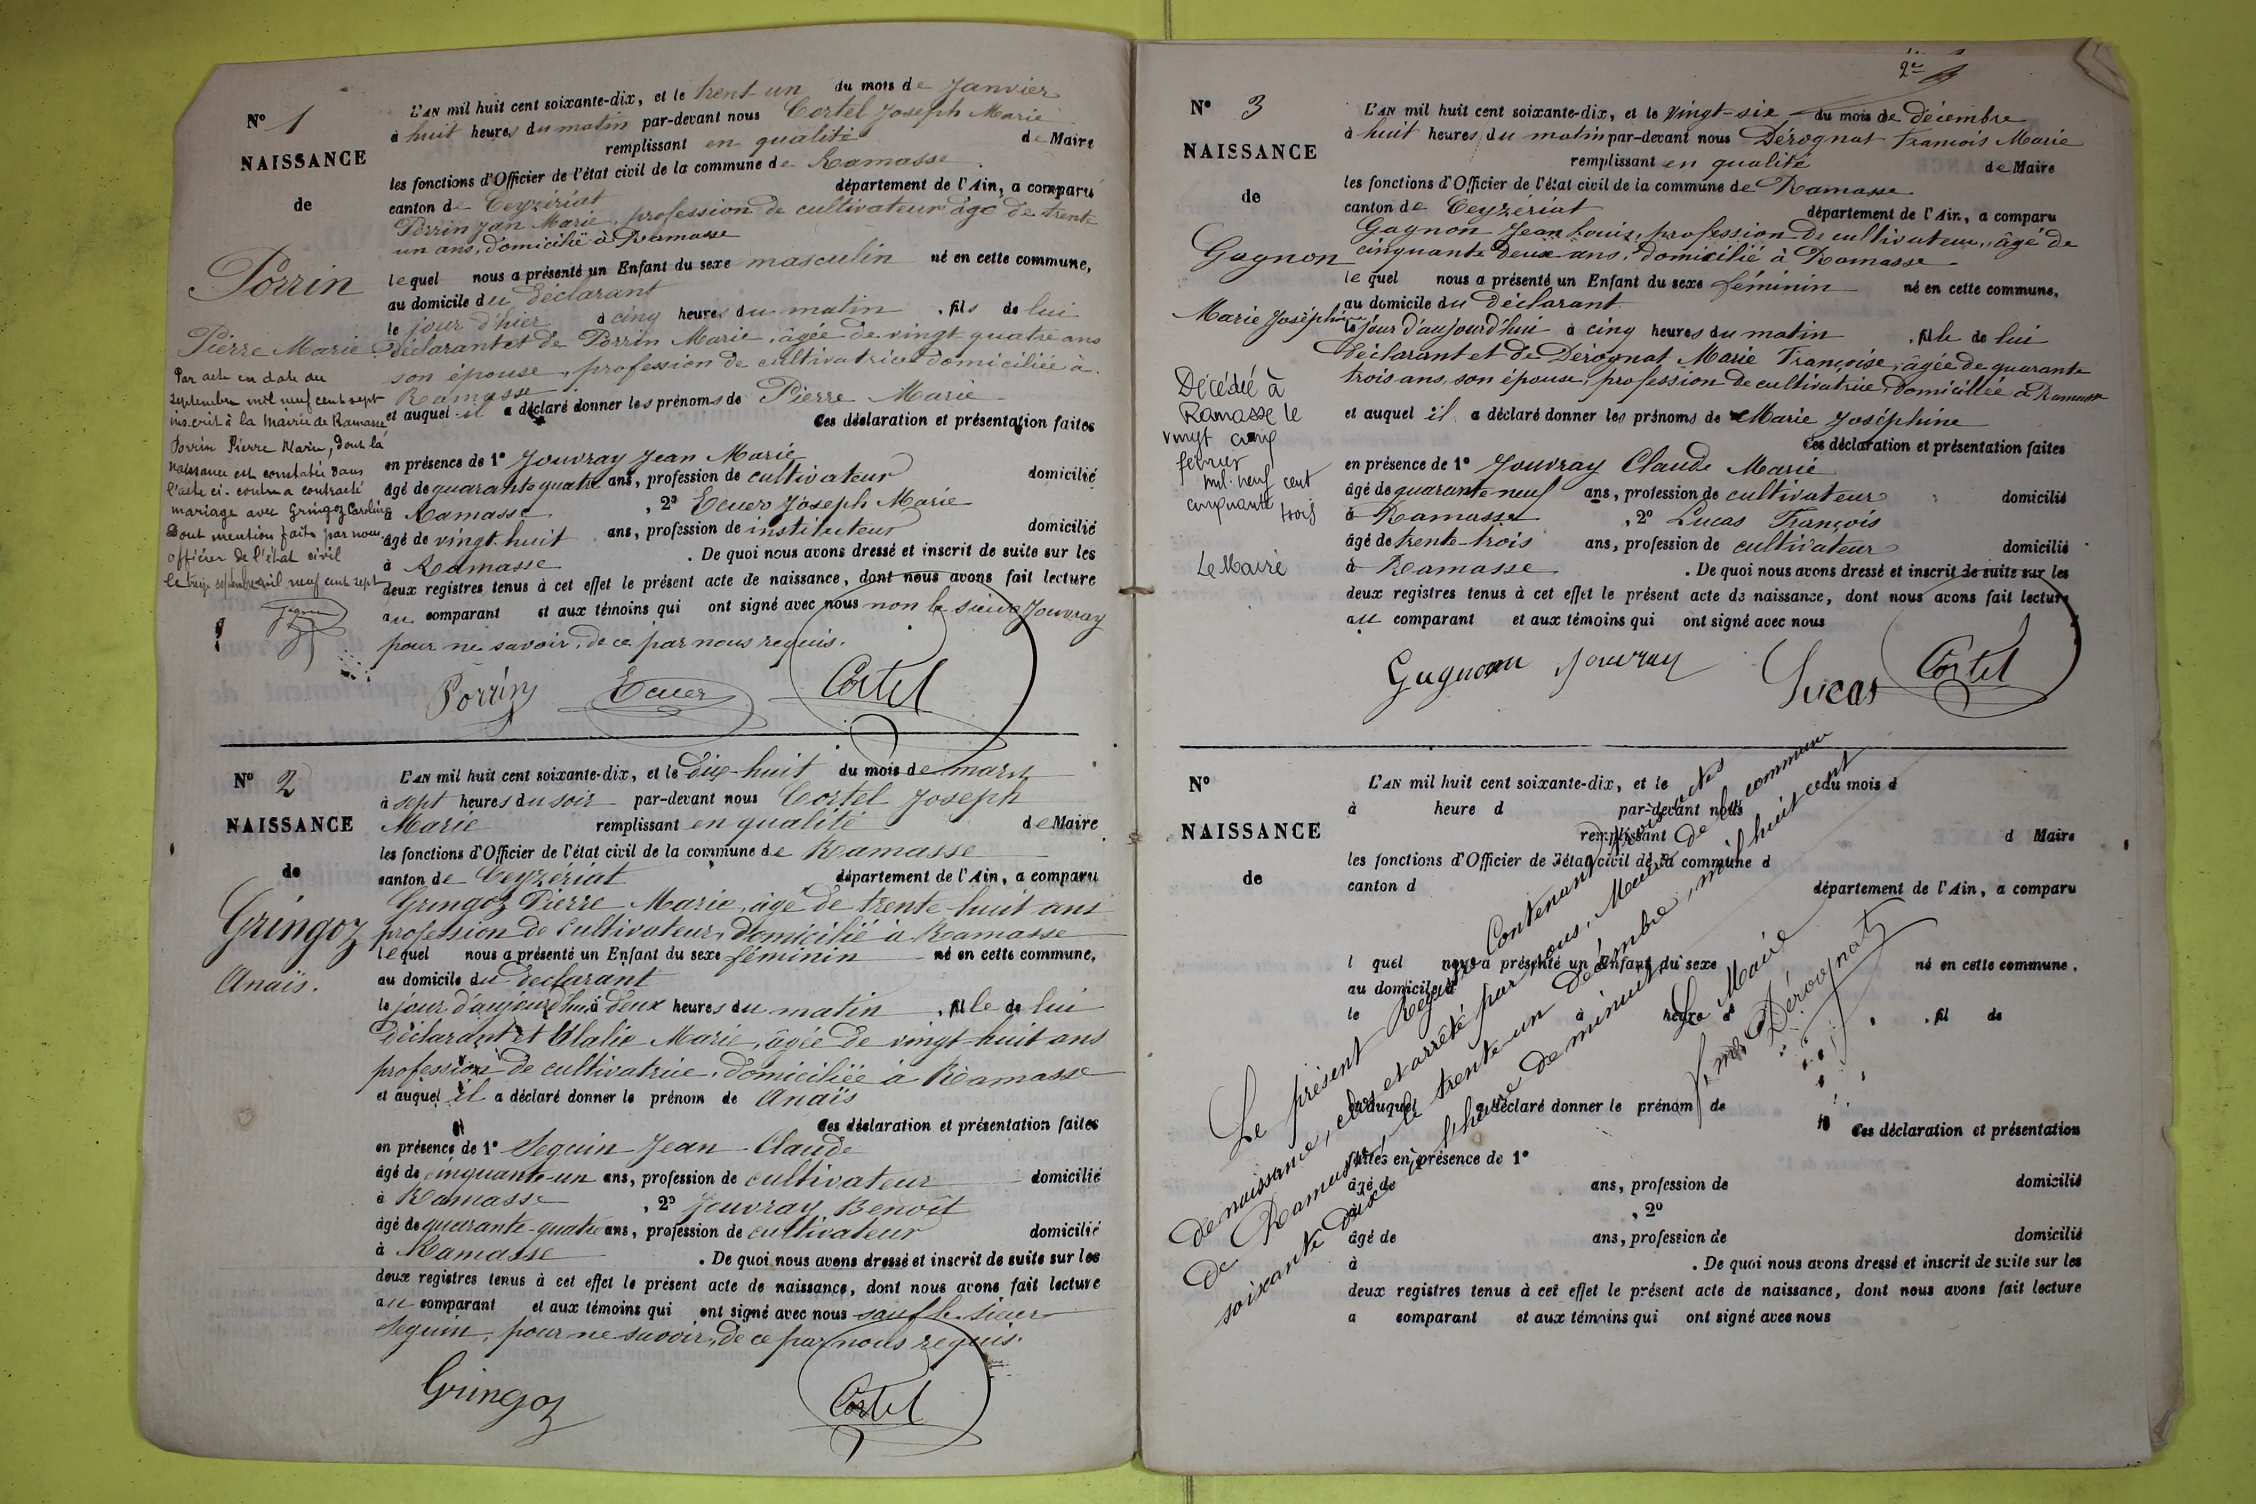 N° 1
NAISSANCE
de
Perrin
Pierre Marie
Par acte en date du
septembre mil neuf cent sept
inscrit à la Mairie de Ramasse
Perrin Pierre Marie, dont la
naissance est constatée dans
l'acte ci-contre a contracté
mariage avec Gringoz Caroline
Dont mention faite par nous
officier de l'état civil
le treize septembre mil neuf cent sept
L'AN mil huit cent soixante-dix, et le trent un du mois de Janvier
à huit heures du matin par-devant nous Cortel Joseph Marie
remplissant en qualité de Maire
les fonctions d'Officier de l'état civil de la commune de Ramasse
canton de Ceyzériat département de l'Ain, a comparu
Perrin Jean Marie, profession de cultivateur âgé de trente
un ans, domicilié à Ramasse
lequel nous a présenté un Enfant du sexe masculin né en cette commune,
au domicile du déclarant
le jour d'hier à cinq heures du matin, fils de lui
déclarant et de Perrin Marie, âgée de vingt quatre ans
son épouse, profession de cultivatrice domiciliée à
Ramasse
et auquel il a déclaré donner les prénoms de Pierre Marie
Ces déclaration et présentation faites
en présence de 1° Jouvray Jean Marie
âgé de quarante quatre ans, profession de cultivateur domicilié
à Ramasse, 2° Ecuer Joseph Marie
âgé de vingt huit ans, profession de instituteur domicilié
à Ramasse. De quoi nous avons dressé et inscrit de suite sur les
deux registres tenus à cet effet le présent acte de naissance, dont nous avons fait lecture
au comparant et aux témoins qui ont signé avec nous non le sieur Jouvray
pour ne savoir, de ce par nous requis.
Perrin Ecuer Cortel
N° 2
NAISSANCE
de
Gringoz
Anaïs.
L'AN mil huit cent soixante-dix, et le dix-huit du mois de mars
à sept heures du soir par-devant nous Cortel Joseph
Marie remplissant en qualité de Maire
les fonctions d'Officier de l'état civil de la commune de Ramasse
canton de Ceyzériat département de l'Ain, a comparu
Gringoz Pierre Marie, âgé de trente-huit ans
profession de cultivateur, domicilié à Ramasse
lequel nous a présenté un Enfant du sexe féminin né en cette commune,
au domicile du déclarant
le jour d'aujourd'hui à deux heures du matin, fille de lui
déclarant et Ulalie Marie, âgée de vingt-huit ans
profession de cultivatrice, domiciliée à Ramasse
et auquel il a déclaré donner le prénom de Anaïs
Ces déclaration et présentation faites
en présence de 1° Seguin Jean-Claude
âgé de cinquante-un ans, profession de cultivateur domicilié
à Ramasse, 2° Jouvray Benoît
âgé de quarante-quatre ans, profession de cultivateur domicilié
à Ramasse. De quoi nous avons dressé et inscrit de suite sur les
deux registres tenus à cet effet le présent acte de naissance, dont nous avons fait lecture
au comparant et aux témoins qui ont signé avec nous sauf le sieur
Seguin, pour ne savoir, de ce par nous requis.
Gringoz Cortel
2e
N° 3
NAISSANCE
de
Gagnon
Marie Joséphine
Décédée à
Ramasse le
vingt cinq
février
mil neuf cent
cinquante trois
Le Maire
L'AN mil huit cent soixante-dix, et le vingt-six du mois de décembre
à huit heures du matin par-devant nous Dérognat François Marie
remplissant en qualité de Maire
les fonctions d'Officier de l'état civil de la commune de Ramasse
canton de Ceyzériat département de l'Ain, a comparu
Gagnon Jean Louis, profession de cultivateur, âgé de
cinquante deux ans, domicilié à Ramasse
lequel nous a présenté un Enfant du sexe féminin né en cette commune,
au domicile du déclarant
le jour d'aujourd'hui à cinq heures du matin, fille de lui
déclarant et de Dérognat Marie Françoise, âgée de quarante
trois ans, son épouse, profession de cultivatrice, domiciliée à Ramasse
et auquel il a déclaré donner les prénoms de Marie Joséphine
Ces déclaration et présentation faites
en présence de 1° Jouvray Claude Marie
âgé de quarante-neuf ans, profession de cultivateur domicilié
à Ramasse, 2° Lucas François
âgé de trente-trois ans, profession de cultivateur domicilié
à Ramasse. De quoi nous avons dressé et inscrit de suite sur les
deux registres tenus à cet effet le présent acte de naissance, dont nous avons fait lecture
au comparant et aux témoins qui ont signé avec nous
Gagnon Jouvray Lucas Cortel
N°
NAISSANCE
de
L'AN mil huit cent soixante-dix, et le du mois d
à heure d par-devant nous
remplissant d Maire
les fonctions d'Officier de l'état civil de la commune d
canton d département de l'Ain, a comparu
l quel nous a présenté un Enfant du sexe né en cette commune,
au domicile d
le à heure d, fil de
et auquel a déclaré donner le prénom de
Ces déclaration et présentation
faites en présence de 1°
âgé de ans, profession de domicilié
à, 2°
âgé de ans, profession de domicilié
à. De quoi nous avons dressé et inscrit de suite sur les
deux registres tenus à cet effet le présent acte de naissance, dont nous avons fait lecture
a comparant et aux témoins qui ont signé avec nous
Le présent Registre Contenant trois actes
de naissance, clos et arrêté par nous, Maire de la commune
de Ramasse, le trente-un décembre, mil huit cent
soixante dix à l'heure de minuit.
Le Maire
Dérognat